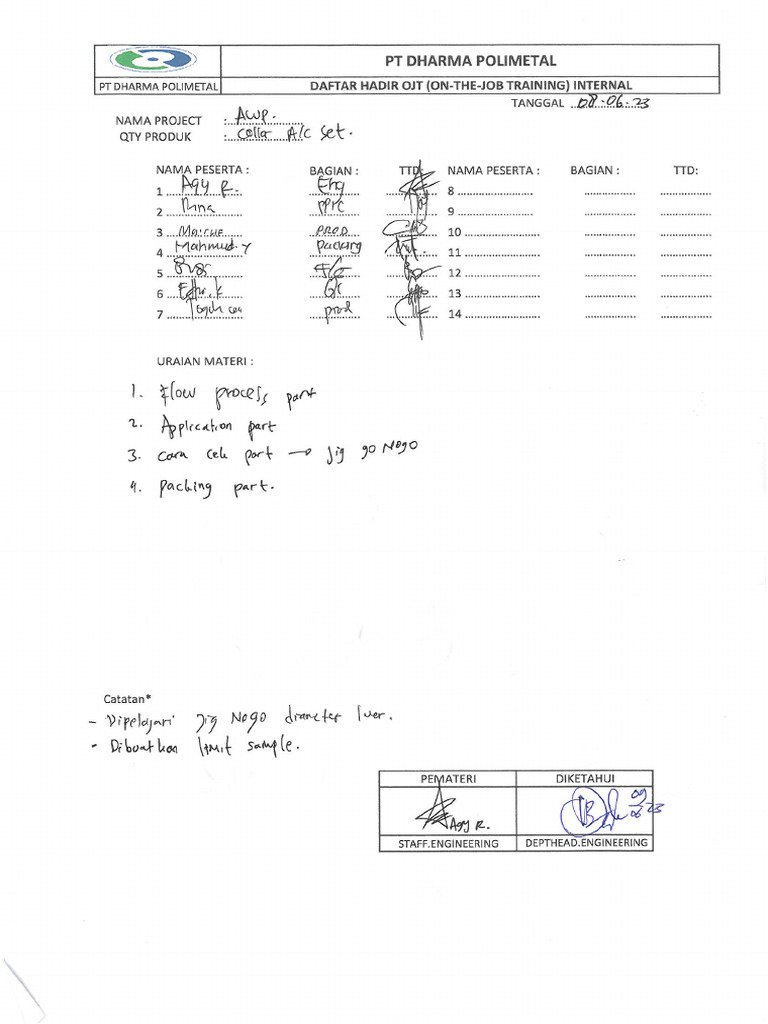 PT DHARMA POLIMETAL
PT DHARMA POLIMETAL
DAFTAR HADIR OJT (ON-THE-JOB TRAINING) INTERNAL
TANGGAL 08-06-23
NAMA PROJECT : AWP.
QTY PRODUK : A/C Set.
NAMA PESERTA : BAGIAN : TTD: NAMA PESERTA : BAGIAN : TTD:
1 Agy R. Eng 8
2 PPIC 9
3 PROD 10
4 Mahmud.Y Packing 11
5 12
6 13
7 prod 14
URAIAN MATERI :
1. Flow process part
2. Application part
3. cara cek part → jig go Nogo
4. packing part.
Catatan*
- Dipelajari Jig Nogo diameter luer.
- Dibuatkan limit sample.
PEMATERI DIKETAHUI
Agy R. 09/06 23
STAFF.ENGINEERING DEPTHEAD.ENGINEERING